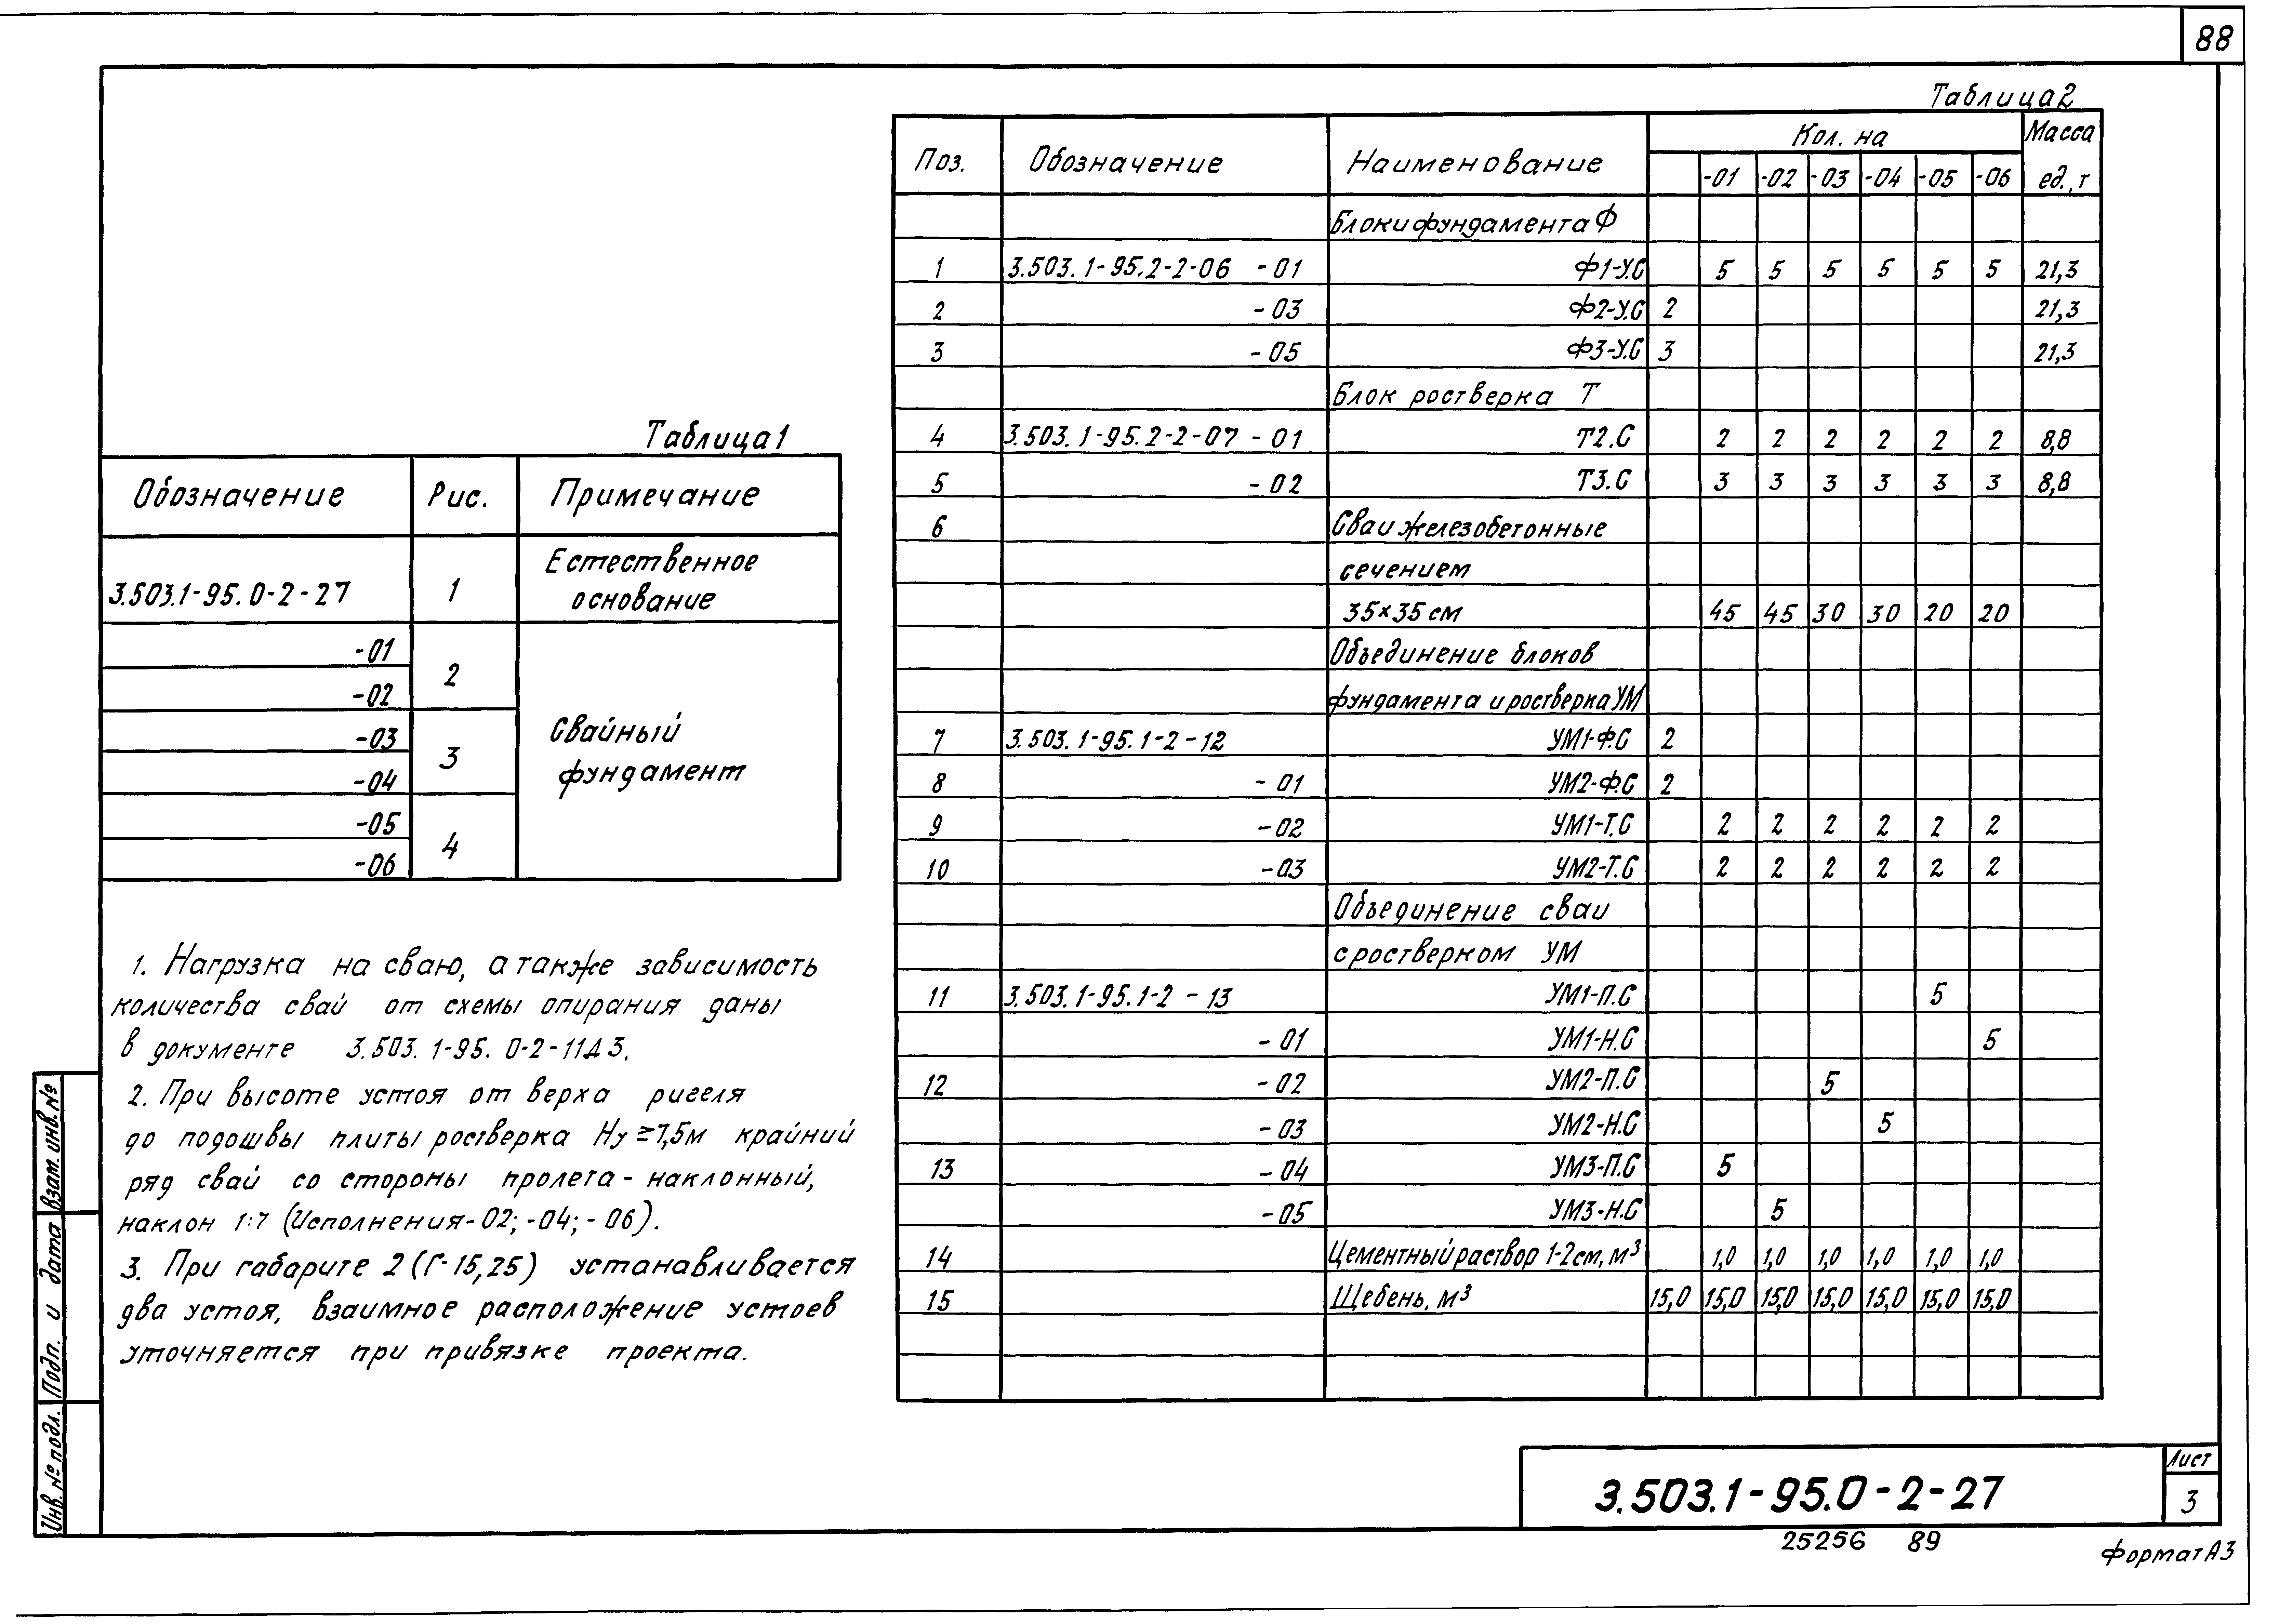 88
Таблица 1
Обозначение Рис. Примечание
3.503.1-95.0-2-27 1 Естественное основание
-01 2 Свайный фундамент
-02
-03 3
-04
-05 4
-06
1. Нагрузка на сваю, а также зависимость
количества свай от схемы опирания даны
в документе 3.503.1-95.0-2-11Д3.
2. При высоте устоя от верха ригеля
до подошвы плиты ростверка Hу ≥ 7,5м крайний
ряд свай со стороны пролета - наклонный,
наклон 1:7 (Исполнения -02; -04; -06).
3. При габарите 2 (Г-15,25) устанавливается
два устоя, взаимное расположение устоев
уточняется при привязке проекта.
Таблица 2
Поз. Обозначение Наименование Кол. на Масса ед., т
-01 -02 -03 -04 -05 -06
Блоки фундамента Ф
1 3.503.1-95.2-2-06 -01 Ф1-У.С 5 5 5 5 5 5 21,3
2 -03 Ф2-У.С 2 21,3
3 -05 Ф3-У.С 3 21,3
Блок ростверка Т
4 3.503.1-95.2-2-07 -01 Т2.С 2 2 2 2 2 2 8,8
5 -02 Т3.С 3 3 3 3 3 3 8,8
6 Сваи железобетонные
сечением
35×35 см 45 45 30 30 20 20
Объединение блоков
фундамента и ростверка УМ
7 3.503.1-95.1-2-12 УМ1-Ф.С 2
8 -01 УМ2-Ф.С 2
9 -02 УМ1-Т.С 2 2 2 2 2 2
10 -03 УМ2-Т.С 2 2 2 2 2 2
Объединение сваи
с ростверком УМ
11 3.503.1-95.1-2-13 УМ1-П.С 5
-01 УМ1-Н.С 5
12 -02 УМ2-П.С 5
-03 УМ2-Н.С 5
13 -04 УМ3-П.С 5
-05 УМ3-Н.С 5
14 Цементный раствор 1-2см, м³ 1,0 1,0 1,0 1,0 1,0 1,0
15 Щебень, м³ 15,0 15,0 15,0 15,0 15,0 15,0 15,0
Инв. № подл. Подп. и дата Взам. инв. №
3.503.1-95.0-2-27
Лист
3
25256 89
Формат А3